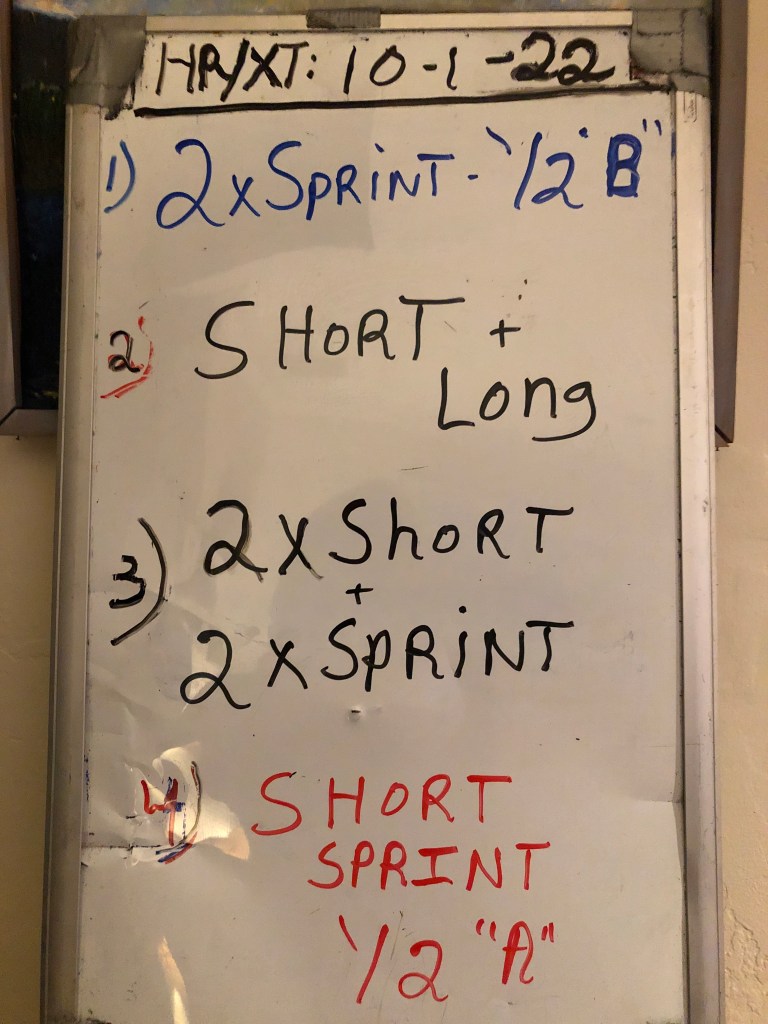 HR/XT: 10-1-22
1) 2xSPRINT - 1/2 "B"
2) SHORT +
Long
3) 2xShORT
+
2xSPRINT
4) SHORT
SPRINT
1/2 "A"